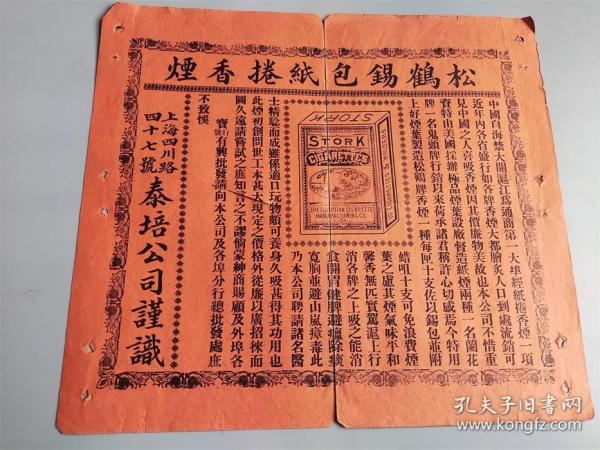 松鶴錫包紙捲香煙
中國自海禁大開滬江爲通商第一大埠經紙捲香煙一項
近年内各省盛行如各牌香煙大都膾炙人口到處流銷可
見中國之人喜吸香煙因其價廉物美故也本公司不惜重
資特由美國採辦極品煙葉設廠督造紙煙兩種一名蘭花
牌一名鬼頭牌行銷以來荷承諸君稱許心切感焉今特用
上好煙葉製造松鶴牌香煙一種每匣十支佐以錫包並附
蜡咀十支可免浪費煙
葉之慮其煙氣味平和
馨香無匹實駕滬上行
消各牌之上吸之能消
食開胃健脾避瘟除痰
寬胸並避山嵐瘴毒此
乃本公司聘請諸名醫
士精騐而成雖係適口玩物頗可養身久吸甚得其功用也
此煙初創問世工本甚大現定之價格外從廉以廣招徠而
圖久遠請嘗試之庶知言之不謬倘蒙紳商賜顧及外埠各
寶行號有興批發請向本公司及各埠分行總批發處庶
不致悞
上海四川路
四十七號
泰培公司謹識
STORK
STORK
CIGARETTES
THE EGYPTIAN CIGARETTE
MANUFACTURING CO.
孔夫子旧书网
www.kongfz.com